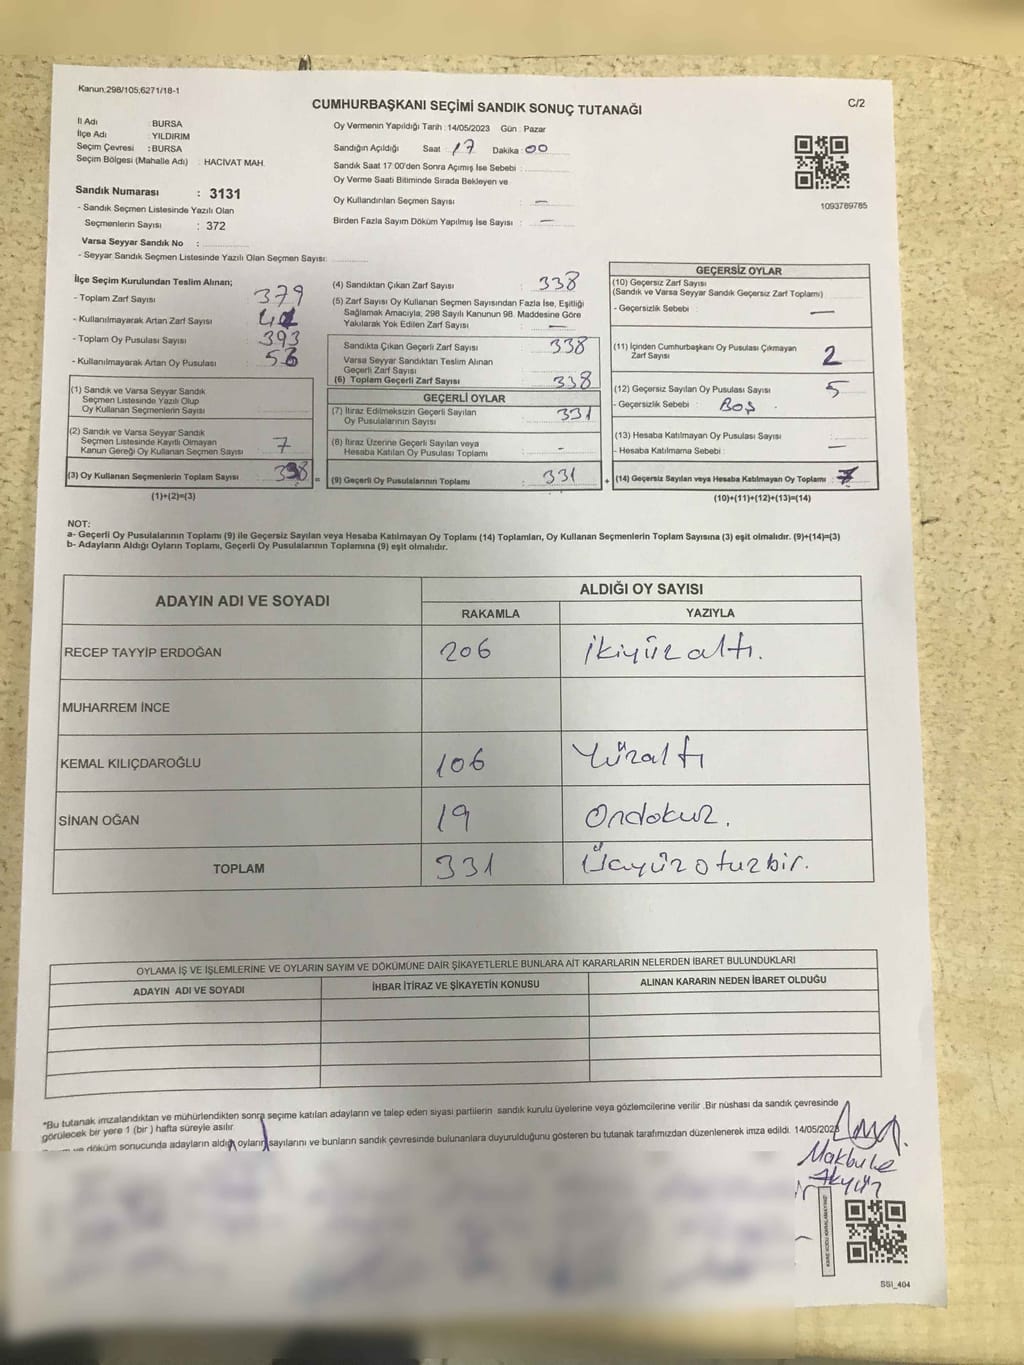 Kanun.298/105,6271/18-1
CUMHURBAŞKANI SEÇİMİ SANDIK SONUÇ TUTANAĞI
C/2
İl Adı : BURSA
İlçe Adı : YILDIRIM
Seçim Çevresi : BURSA
Seçim Bölgesi (Mahalle Adı) : HACİVAT MAH.
Sandık Numarası : 3131
- Sandık Seçmen Listesinde Yazılı Olan
Seçmenlerin Sayısı : 372
Varsa Seyyar Sandık No :
- Seyyar Sandık Seçmen Listesinde Yazılı Olan Seçmen Sayısı:
Oy Vermenin Yapıldığı Tarih : 14/05/2023 Gün : Pazar
Sandığın Açıldığı Saat : 17 Dakika : 00
Sandık Saat 17:00'den Sonra Açımış İse Sebebi :
Oy Verme Saati Bitiminde Sırada Bekleyen ve
Oy Kullandırılan Seçmen Sayısı : —
Birden Fazla Sayım Döküm Yapılmış İse Sayısı : —
1093789785
İlçe Seçim Kurulundan Teslim Alınan;
- Toplam Zarf Sayısı 379
- Kullanılmayarak Artan Zarf Sayısı
- Toplam Oy Pusulası Sayısı 393
- Kullanılmayarak Artan Oy Pusulası
(1) Sandık ve Varsa Seyyar Sandık
Seçmen Listesinde Yazılı Olup
Oy Kullanan Seçmenlerin Sayısı
(2) Sandık ve Varsa Seyyar Sandık
Seçmen Listesinde Kayıtlı Olmayan
Kanun Gereği Oy Kullanan Seçmen Sayısı : 7
(3) Oy Kullanan Seçmenlerin Toplam Sayısı : 338
(1)+(2)=(3)
(4) Sandıktan Çıkan Zarf Sayısı : 338
(5) Zarf Sayısı Oy Kullanan Seçmen Sayısından Fazla İse, Eşitliği
Sağlamak Amacıyla, 298 Sayılı Kanunun 98. Maddesine Göre
Yakılarak Yok Edilen Zarf Sayısı : —
Sandıkta Çıkan Geçerli Zarf Sayısı : 338
Varsa Seyyar Sandıktan Teslim Alınan
Geçerli Zarf Sayısı
(6) Toplam Geçerli Zarf Sayısı : 338
GEÇERLİ OYLAR
(7) İtiraz Edilmeksizin Geçerli Sayılan
Oy Pusulasının Sayısı : 331
(8) İtiraz Üzerine Geçerli Sayılan veya
Hesaba Katılan Oy Pusulası Toplamı : -
= (9) Geçerli Oy Pusulalarının Toplamı : 331
GEÇERSİZ OYLAR
(10) Geçersiz Zarf Sayısı
(Sandık ve Varsa Seyyar Sandık Geçersiz Zarf Toplamı)
- Geçersizlik Sebebi : —
(11) İçinden Cumhurbaşkanı Oy Pusulası Çıkmayan
Zarf Sayısı : 2
(12) Geçersiz Sayılan Oy Pusulası Sayısı : 5
- Geçersizlik Sebebi : BOŞ
(13) Hesaba Katılmayan Oy Pusulası Sayısı : —
- Hesaba Katılmama Sebebi :
+ (14) Geçersiz Sayılan veya Hesaba Katılmayan Oy Toplamı : 7
(10)+(11)+(12)+(13)=(14)
NOT:
a- Geçerli Oy Pusulalarının Toplamı (9) ile Geçersiz Sayılan veya Hesaba Katılmayan Oy Toplamı (14) Toplamları, Oy Kullanan Seçmenlerin Toplam Sayısına (3) eşit olmalıdır. (9)+(14)=(3)
b- Adayların Aldığı Oyların Toplamı, Geçerli Oy Pusulalarının Toplamına (9) eşit olmalıdır.
ADAYIN ADI VE SOYADI ALDIĞI OY SAYISI
RAKAMLA YAZIYLA
RECEP TAYYİP ERDOĞAN 206 ikiyüzaltı.
MUHARREM İNCE
KEMAL KILIÇDAROĞLU 106 Yüzaltı
SİNAN OĞAN 19 Ondokuz.
TOPLAM 331 Üçyüzotuzbir.
OYLAMA İŞ VE İŞLEMLERİNE VE OYLARIN SAYIM VE DÖKÜMÜNE DAİR ŞİKAYETLERLE BUNLARA AİT KARARLARIN NELERDEN İBARET BULUNDUKLARI
ADAYIN ADI VE SOYADI İHBAR İTİRAZ VE ŞİKAYETİN KONUSU ALINAN KARARIN NEDEN İBARET OLDUĞU
*Bu tutanak imzalandıktan ve mühürlendikten sonra seçime katılan adayların ve talep eden siyasi partilerin sandık kurulu üyelerine veya gözlemcilerine verilir .Bir nüshası da sandık çevresinde
görülecek bir yere 1 (bir ) hafta süreyle asılır.
ve döküm sonucunda adayların aldığı oyların sayılarını ve bunların sandık çevresinde bulunanlara duyurulduğunu gösteren bu tutanak tarafımızdan düzenlenerek imza edildi. 14/05/2023
Makbule
Akyüz
SSI_404